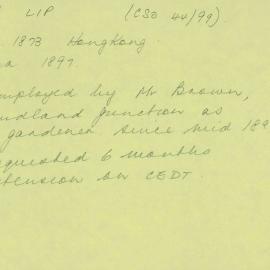 LIP (CSO 44/99)
1873 HongKong.
a 1897.
mployed by Mr Brown,
idland Junction as
gardener since mid 189
equested 6 months
tension on CEDT.